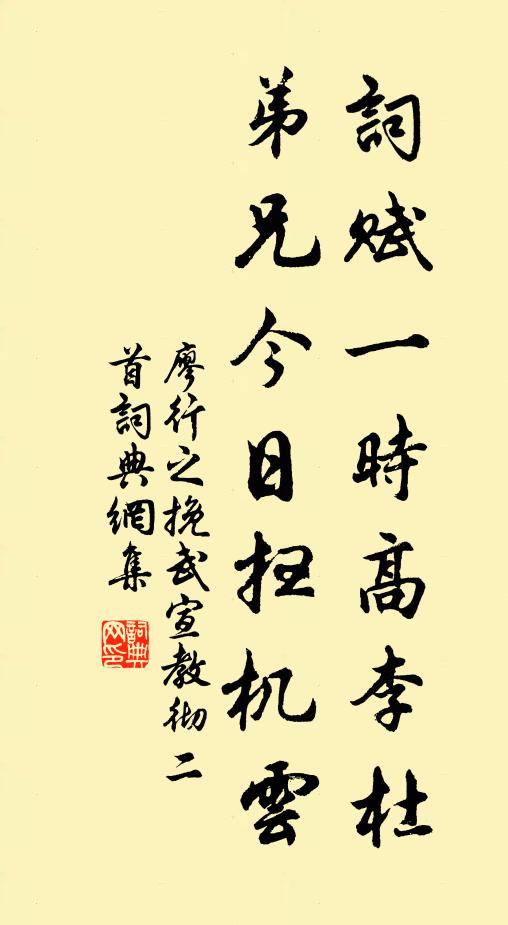 詞賦一時高李杜
弟兄今日抂机雲
廖行之挽武宣教彻二
首詞典網集
詞典
网印